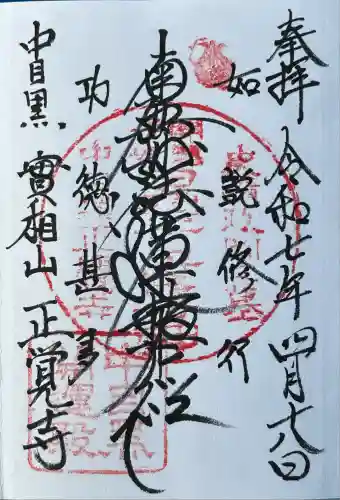 奉拝 令和七年 四月十八日
如説修行
南無妙法蓮華経
功徳甚多
中目黒 實相山 正覚寺